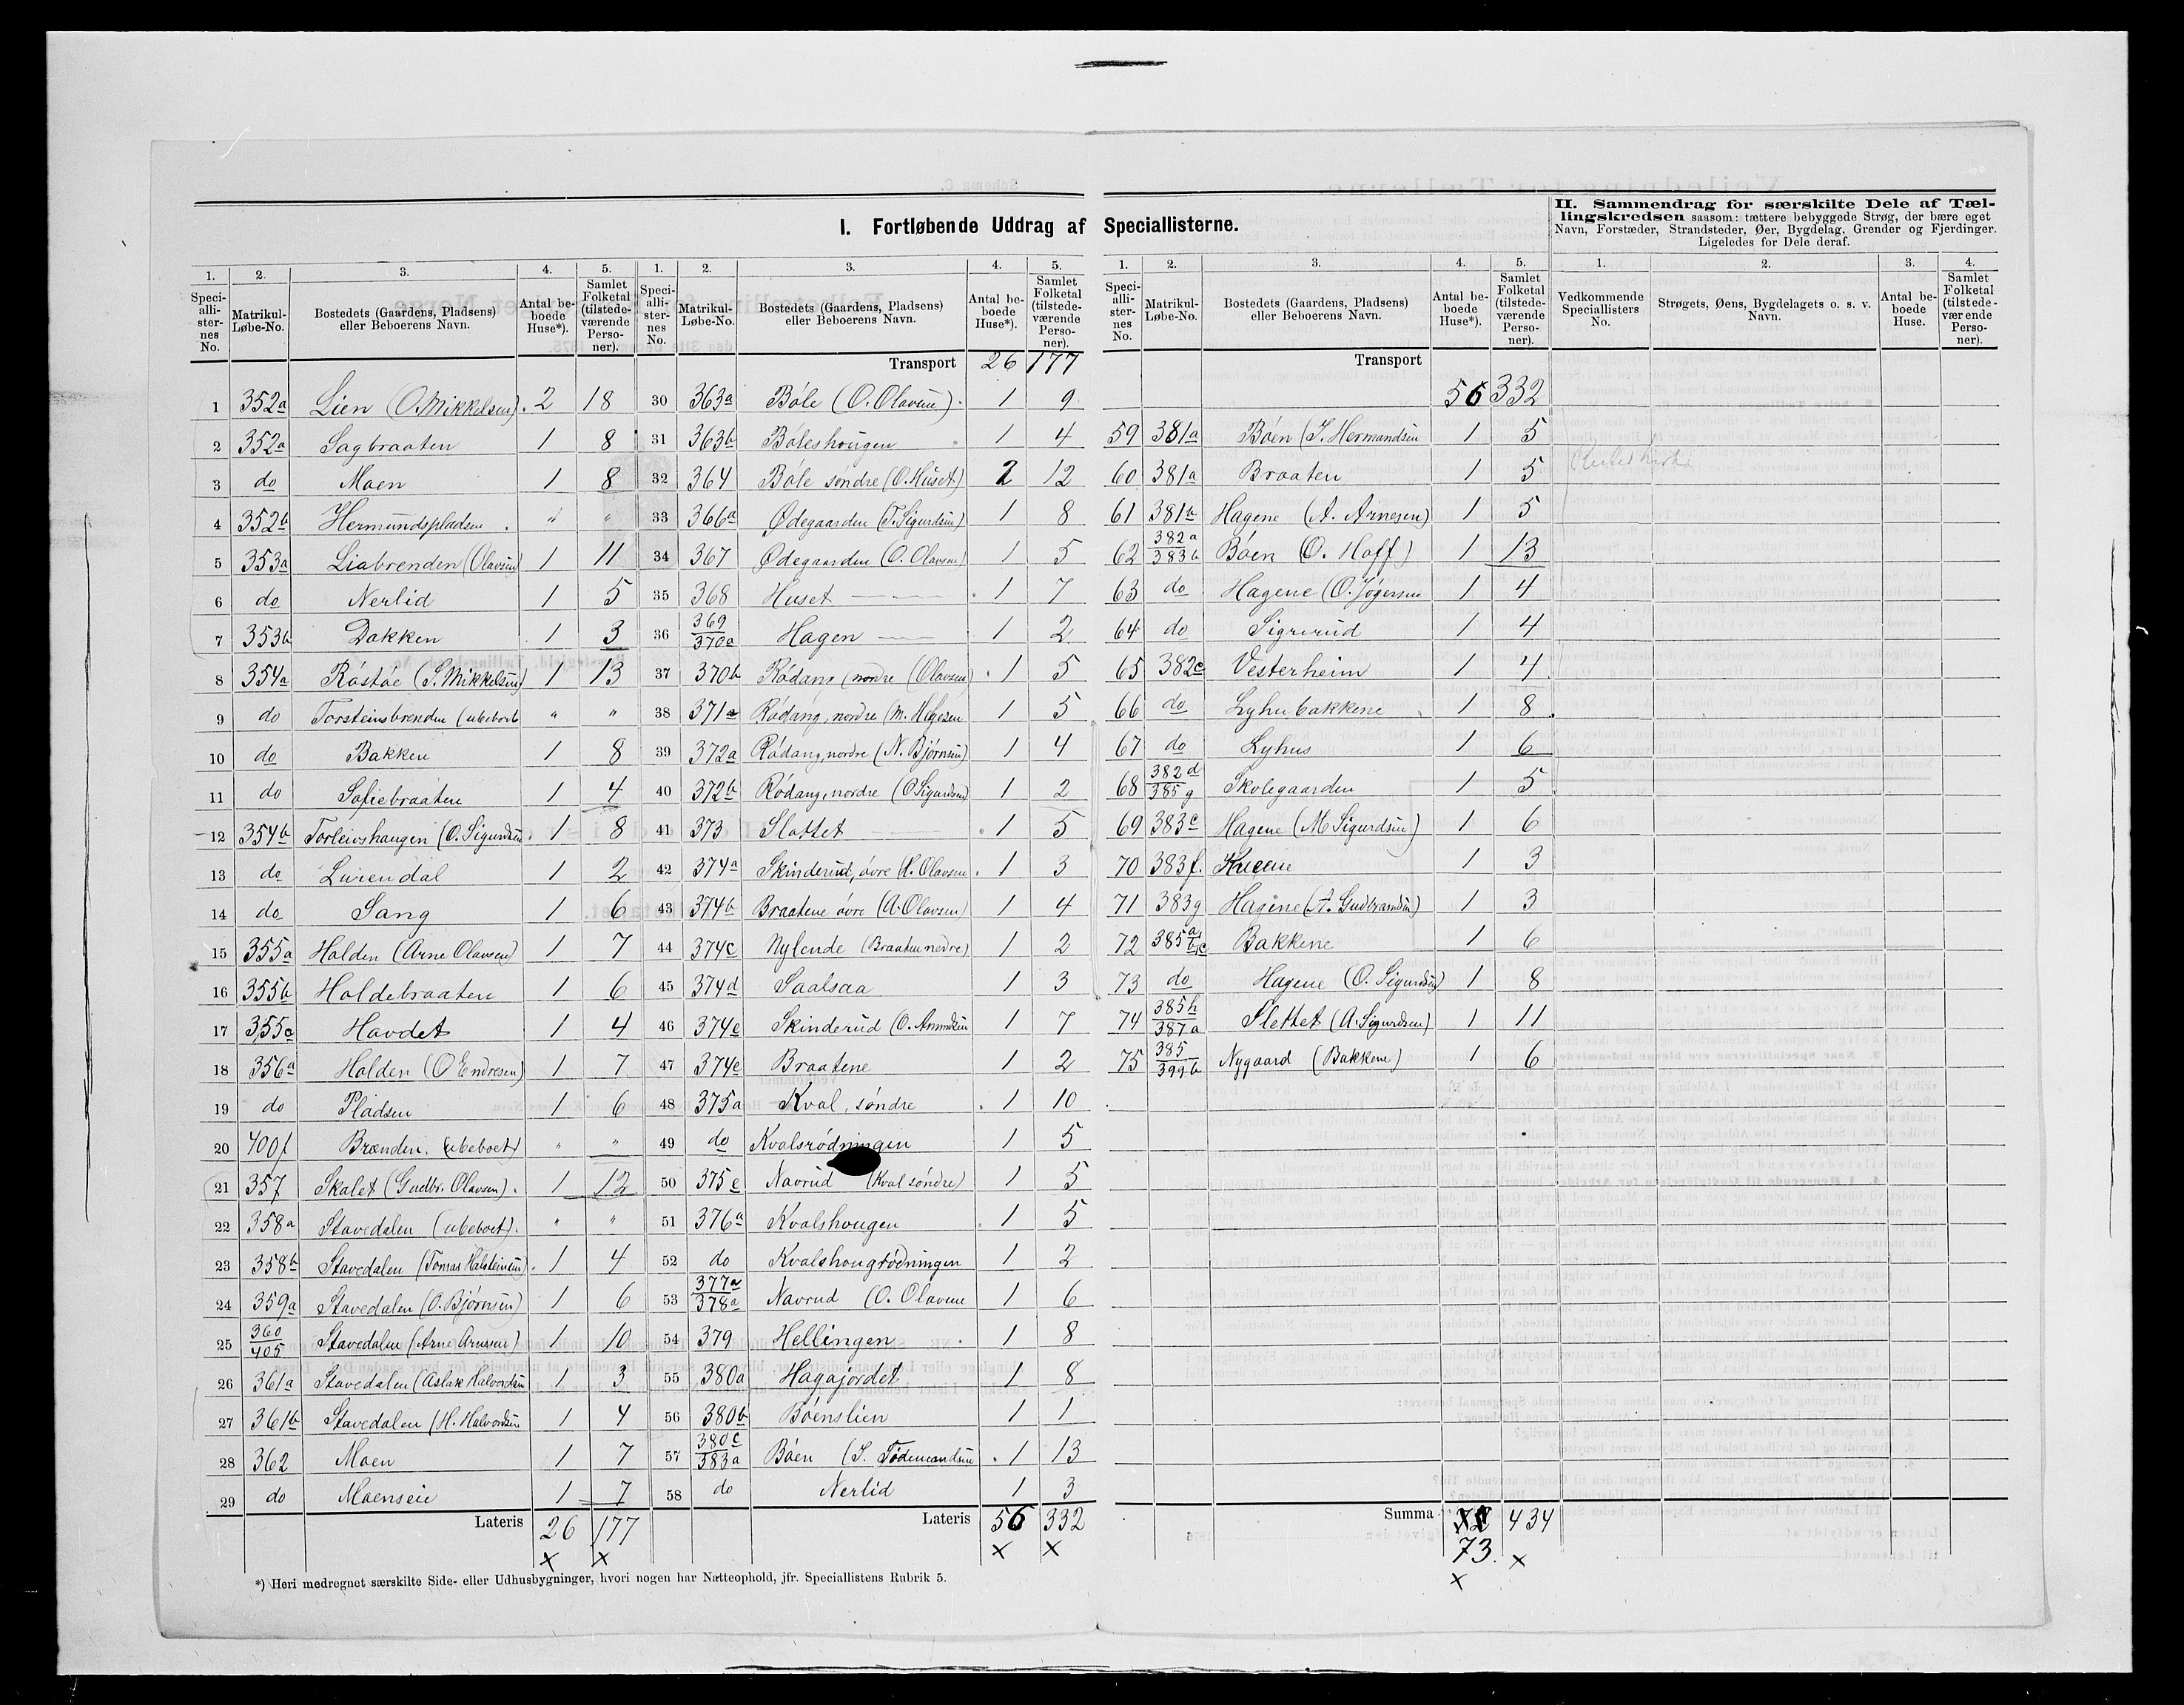 I. Fortløbende Uddrag af Speciallisterne.
II. Sammendrag for særskilte Dele af Tæl-
lingskredsen saasom: tættere bebyggede Strøg, der bære eget
Navn, Forstæder, Strandsteder, Øer, Bygdelag, Grender og Fjerdinger.
Ligeledes for Dele deraf.
1. 2. 3. 4. 5.
Speci-alli-ster-nes No. Matrikul-Løbe-No. Bostedets (Gaardens, Pladsens) eller Beboerens Navn. Antal be-boede Huse*). Samlet Folketal (tilstede-værende Perso-ner).
1 352a Lien (O. Mikkelsen). 2 18
2 352a Sagbraaten 1 8
3 do Moen 1 8
4 352b Hermundspladsen. " "
5 353a Liabrenden (Olavsen) 1 11
6 do Nerlid 1 5
7 353b Dokken 1 3
8 354a Róstóe (S. Mikkelsen) 1 13
9 do Torsteinsbrenden (ubeboet " "
10 do Bakken 1 8
11 do Sofiebraaten 1 4
12 354b Torleivshaugen (O. Sigurdsen 1 8
13 do Lurendal 1 2
14 do Sang 1 6
15 355a Holden (Arne Olavsen) 1 7
16 355b Holdebraaten 1 6
17 355c Hovdet 1 4
18 356a Holden (O Endresen) 1 7
19 do Pladsen 1 6
20 400f Brænden. (ubeboet) " "
21 357 Skalet (Gudbr. Olavsen). 1 12
22 358a Stavedalen (ubeboet). " "
23 358b Stavedalen (Tomas Halsteinsen). 1 4
24 359a Stavedalen (O. Bjørnsen) 1 6
25 360/405 Stavedalen (Arne Arnesen) 1 10
26 361a Stavedalen (Aslak Halvordsen 1 3
27 361b Stavedalen (H. Halvordsen 1 4
28 362 Moen 1 7
29 do Moenseie 1 7
Lateris 26 177
x x
1. 2. 3. 4. 5.
Speci-alli-ster-nes No. Matrikul-Løbe-No. Bostedets (Gaardens, Pladsens) eller Beboerens Navn. Antal be-boede Huse*). Samlet Folketal (tilstede-værende Perso-ner).
Transport 26 177
30 363a Bóle (O. Olavsen). 1 9
31 363b Bóleshougen 1 4
32 364 Bóle søndre (O. Huset) 2 12
33 366a Ødegaarden (T. Sigurdsen) 1 8
34 367 Ødegaarden (O. Olavsen) 1 5
35 368 Huset 1 7
36 369/370a Hagen 1 2
37 370b Ródang nordre (Olavsen). 1 5
38 371a Ródang, nordre (M. Helgesen 1 5
39 372a Ródang, nordre (N. Bjørnsen) 1 4
40 372b Ródang, nordre (O Sigurdsen) 1 2
41 373 Slottet 1 5
42 374a Skinderud, óvre (K. Olavsen. 1 3
43 374b Braatene óvre (A. Olavsen) 1 4
44 374c Nylende (Braaten nedre) 1 2
45 374d Saalsaa 1 3
46 374e Skinderud (O. Amundsen 1 7
47 374e Braatene 1 2
48 375a Kval, søndre 1 10
49 do Kvalsródningen 1 5
50 375c Navrud (Kval søndre) 1 5
51 376a Kvalshougen 1 5
52 do Kvalshougródningen 1 2
53 377a/378a Navrud (O. Olavsen 1 6
54 379 Hellingen 1 8
55 380a Hagajordet 1 8
56 380b Bóenslien 1 1
57 380c/383a Bóen (S. Tødemandsen. 1 13
58 do Nerlid 1 3
Lateris 56 332
x x
1. 2. 3. 4. 5.
Speci-alli-ster-nes No. Matrikul-Løbe-No. Bostedets (Gaardens, Pladsens) eller Beboerens Navn. Antal be-boede Huse*). Samlet Folketal (tilstede-værende Perso-ner).
Transport
56 332
59 381a Bóen (S. Hermandsen 1 5
60 381a Braaten 1 5
61 381b Hagene (A. Arnesen) 1 5
62 382a/383b Bóen (O. Hoff) 1 13
63 do Hagene (O. Jógersen 1 4
64 do Sigrerud 1 4
65 382c Vesterheim 1 4
66 do Lyhusbakkene 1 8
67 do Lyhus 1 6
68 382d/385g Skolegaarden 1 5
69 383c Hagene (M Sigurdsen) 1 6
70 383f. 1 3
71 383g Hagene (A. Gudbrandsen) 1 3
72 385a b,c Bakkene 1 6
73 do Hagene (O. Sigurdsen) 1 8
74 385h/387a Slettet (A. Sigurdsen) 1 11
75 385/399b Nygaard (Bakkene) 1 6
Summa 434
73. x
x
1. 2. 3. 4.
Vedkommende Speciallisters No. Strøgets, Øens, Bygdelagets o. s. v. Navn. Antal be-boede Huse. Samlet Folketal (tilstede-værende Perso-ner).
*) Heri medregnet særskilte Side- eller Udhusbygninger, hvori nogen har Natteophold, jfr. Speciallistens Rubrik 5.